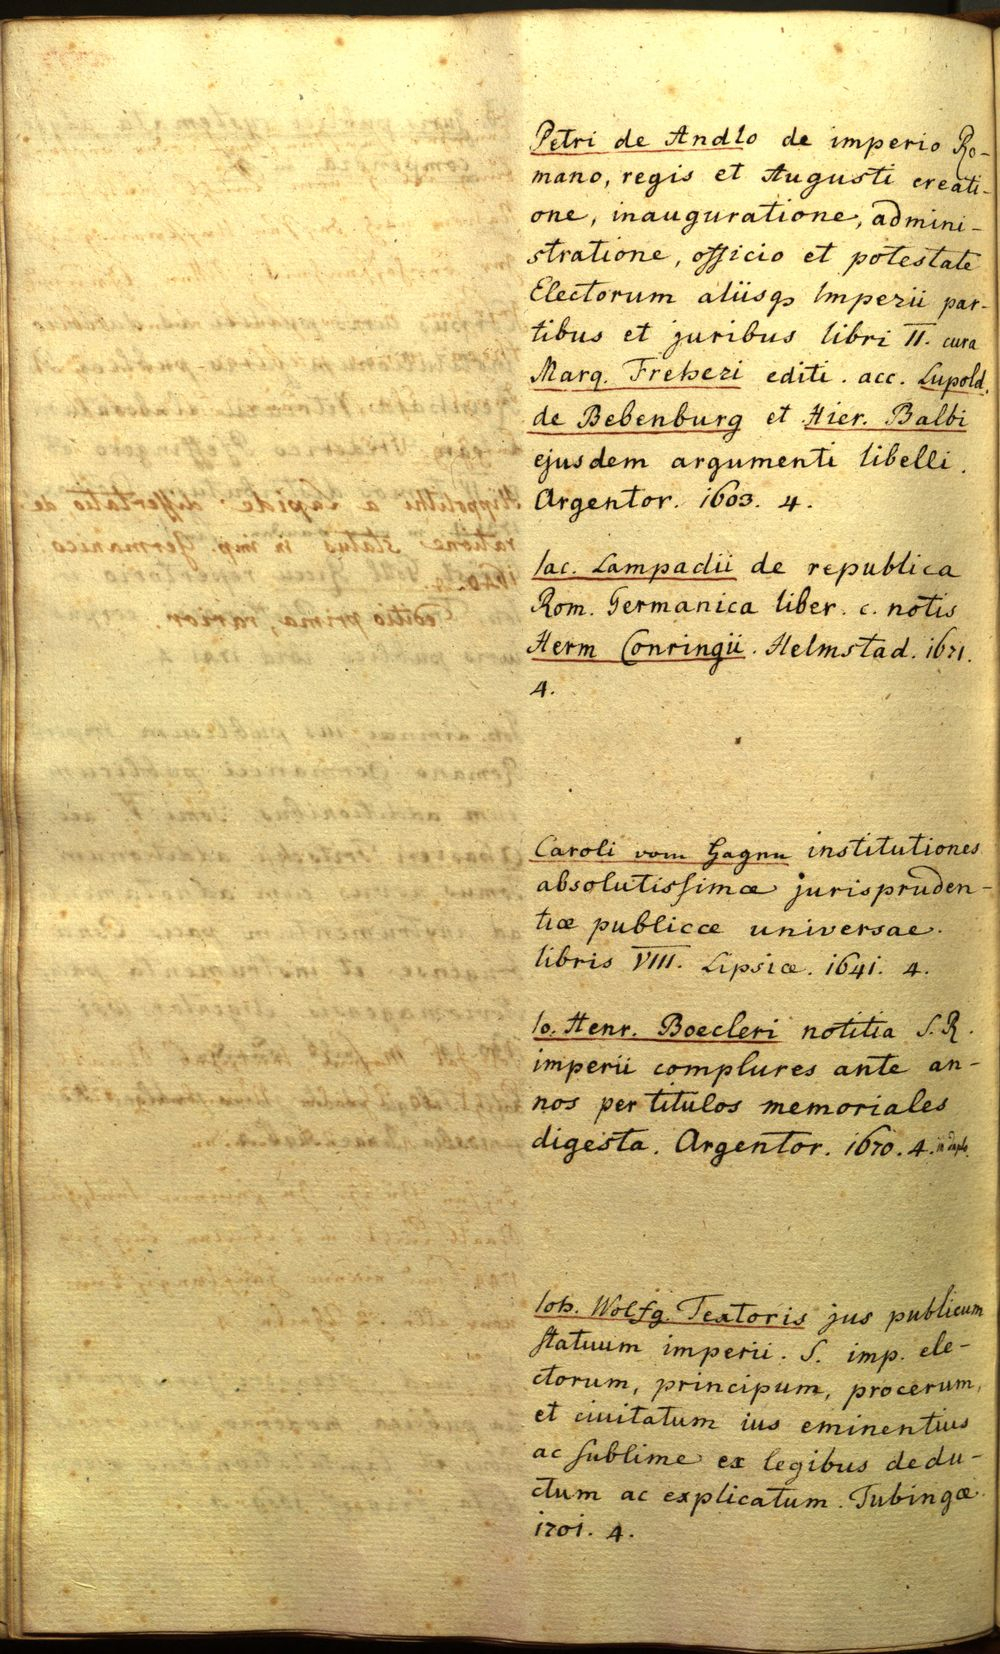 Petri de Andlo de imperio Ro-
mano, regis et Augusti creati-
one, inauguratione, admini-
stratione, officio et potestate
Electorum aliisq₃ Imperii par-
tibus et juribus libri II. cura
Marq. Freheri editi. acc. Lupold.
de Bebenburg et Hier. Balbi
ejusdem argumenti libelli.
Argentor. 1603. 4.
Iac. Lampadii de republica
Rom. Germanica liber. c. notis
Herm Conringii. Helmstad. 1671.
4.
Caroli vom institutiones
absolutissimæ jurispruden-
tiæ publicæ universae.
libris VIII. Lipsiæ. 1641. 4.
Io. Henr. Boecleri notitia S. R.
imperii complures ante an-
nos per titulos memoriales
digesta. Argentor. 1670. 4. in duplo.
Ioh. Wolfg. Textoris jus publicum
statuum imperii. S. imp. ele-
ctorum, principum, procerum,
et civitatum ius eminentius
ac sublime ex legibus dedu-
ctum ac explicatum. Tubingæ.
1701. 4.